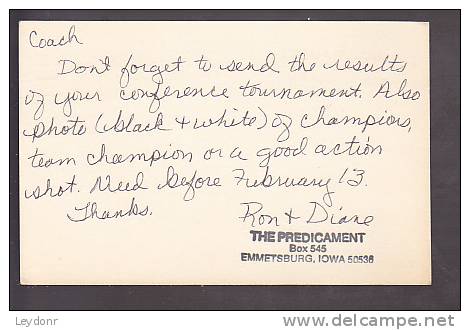 Coach
Don't forget to send the results
of your conference tournament. Also
photo (black + white) of champions,
team champion or a good action
shot. Need before February 13.
Thanks.
Ron + Diane
THE PREDICAMENT
Box 545
EMMETSBURG, IOWA 50536
Leydonr
delcampe.net